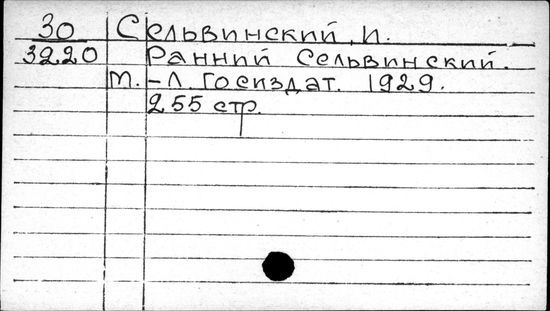 30 Сельвинский, И.
3220 Ранний Сельвинский.
М.-Л. Госиздат. 1929.
255 стр.